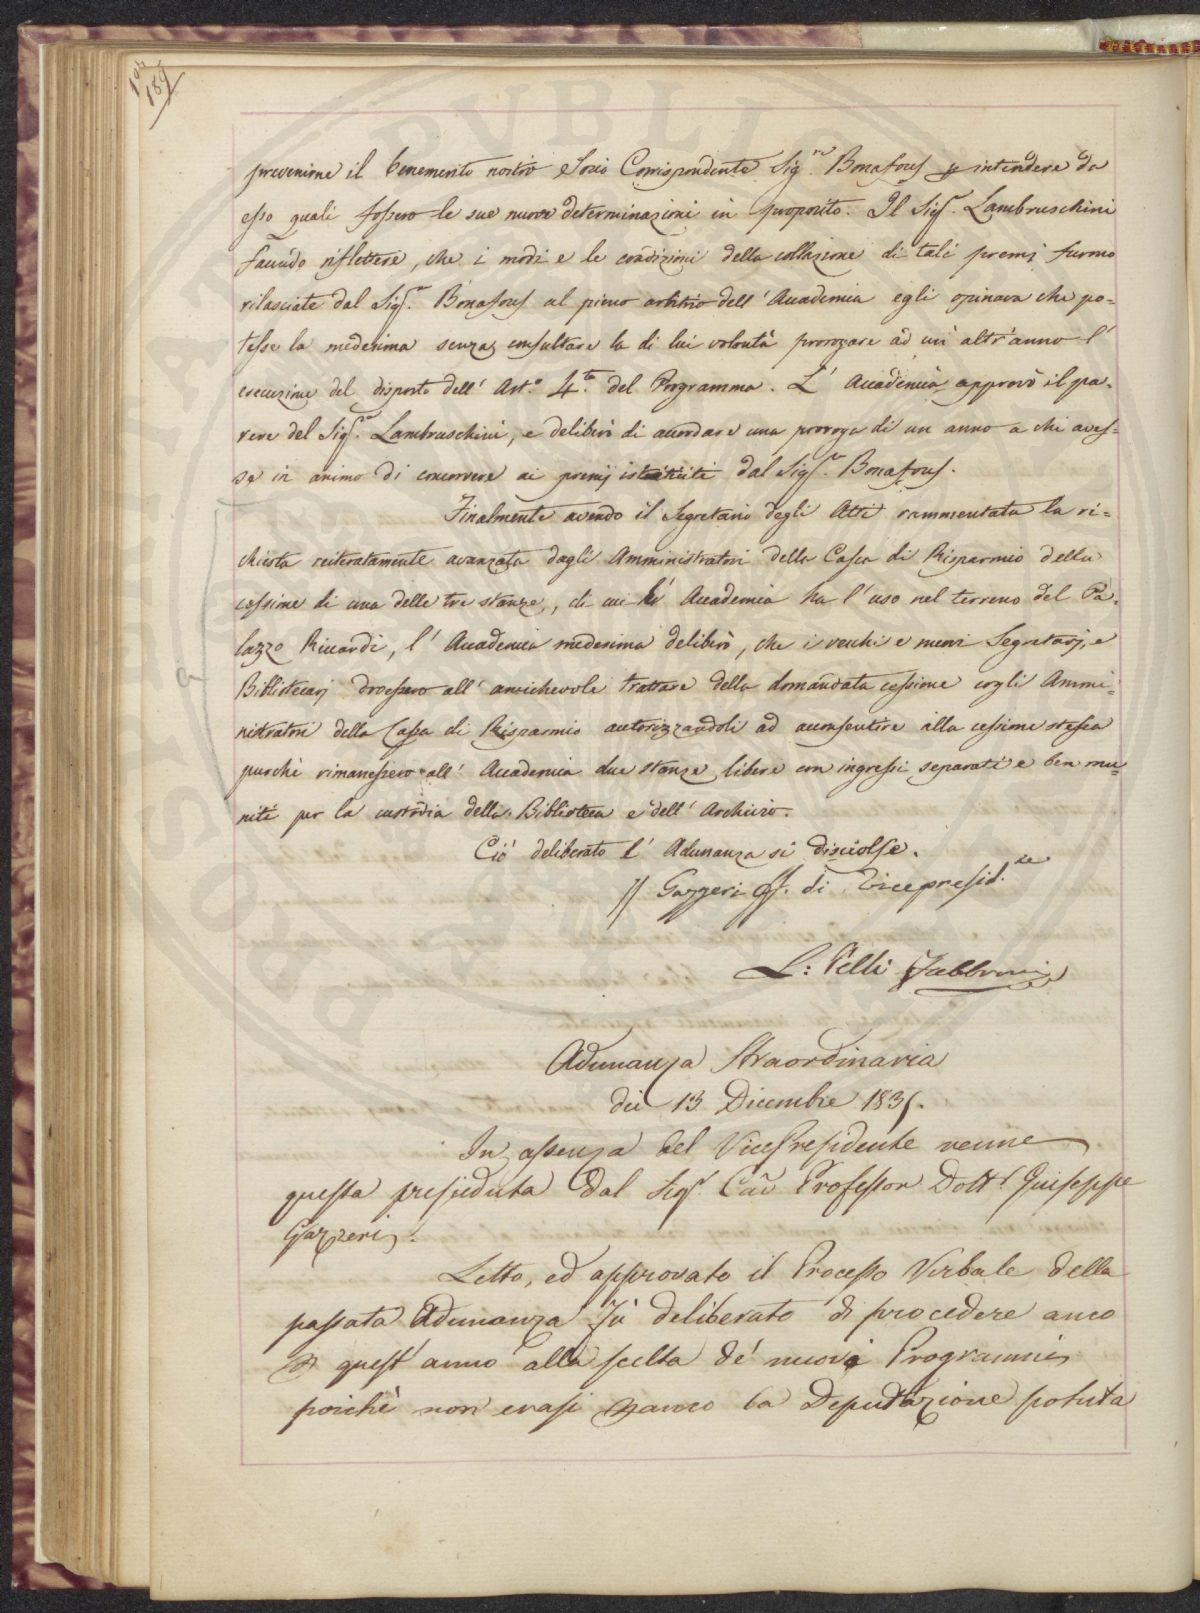 189
prevenirne il benemerito nostro Socio Corrispondente Sig.re Bonafous p intendere da
esso quali fossero le sue nuove determinazioni in proposito. Il Sig.r Lambruschini
facendo riflettere, che i modi e le condizioni della collazione di tali premj furono
rilasciate dal Sig.r Bonafous al pieno arbitrio dell'Accademia egli opinava che po=
tesse la medesima senza consultare la di lui volontà prorogare ad un altr'anno l'
esecuzione del disposto dell'Art.o 4.to del Programma. L'Accademia approvò il pa=
rere del Sig.r Lambruschini, e deliberò di accordare una proroga di un anno a chi aves=
se in animo di concorrere ai premj istituiti dal Sig.r Bonafous.
Finalmente avendo il Segretario degli Atti rammentata la ri=
chiesta reiteratamente avanzata dagli Amministratori della Cassa di Risparmio della
cessione di una delle tre stanze, di cui l'Accademia ha l'uso nel terreno del Pa=
lazzo Riccardi, l'Accademia medesima deliberò, che i vecchi e nuovi Segretarj, e
Bibliotecarj dovessero all'amichevole trattare della domandata cessione cogli Ammi=
nistratori della Cassa di Risparmio autorizzandoli ad acconsentire alla cessione stessa
purchè rimanessero all'Accademia due stanze libere con ingressi separati e ben mu=
nite per la custodia della Biblioteca e dell'Archivio.
Ciò deliberato l'Adunanza si disciolse.
Gazzeri ff. di Vicepresid.te
L: Pelli Fabbroni
Adunanza Straordinaria
dei 13 Dicembre 1835.
In assenza del VicePresidente venne
questa presieduta dal Sig.r Cav Professor Dott.r Guiseppe
Gazzeri.
Letto, ed approvato il Processo Verbale della
passata Adunanza fù deliberato di procedere anco
p quest'anno alla scelta de' nuovi Programmi
poichè non erasi manco la Deputazione potuta